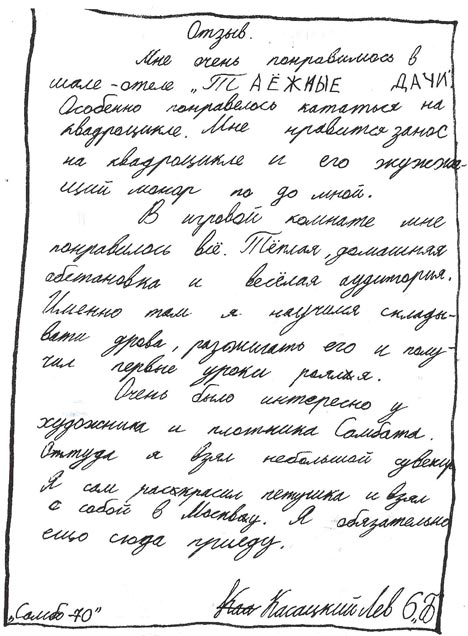 Отзыв.
Мне очень понравилось в
шале-отеле „ТАЁЖНЫЕ ДАЧИ".
Особенно понравелось кататься на
квадроцикле. Мне нравится занос
на квадроцикле и его жужжа-
щий мотор по до мной.
В игровой комнате мне
понравилось всё. Тёплая, домашняя
обстановка и весёлая аудитория.
Именно там я научился склады-
вать дрова, разжигать его и полу-
чил первые уроки рояля.
Очень было интересно у
художника и плотника Самбата.
Оттуда я взял небольшой сувенир
Я сам расскрасил петушка и взял
с собой в Москвыу. Я обязательно
ещо сюда приеду.
„Самбо-70" Касацкий Лев 6„Б